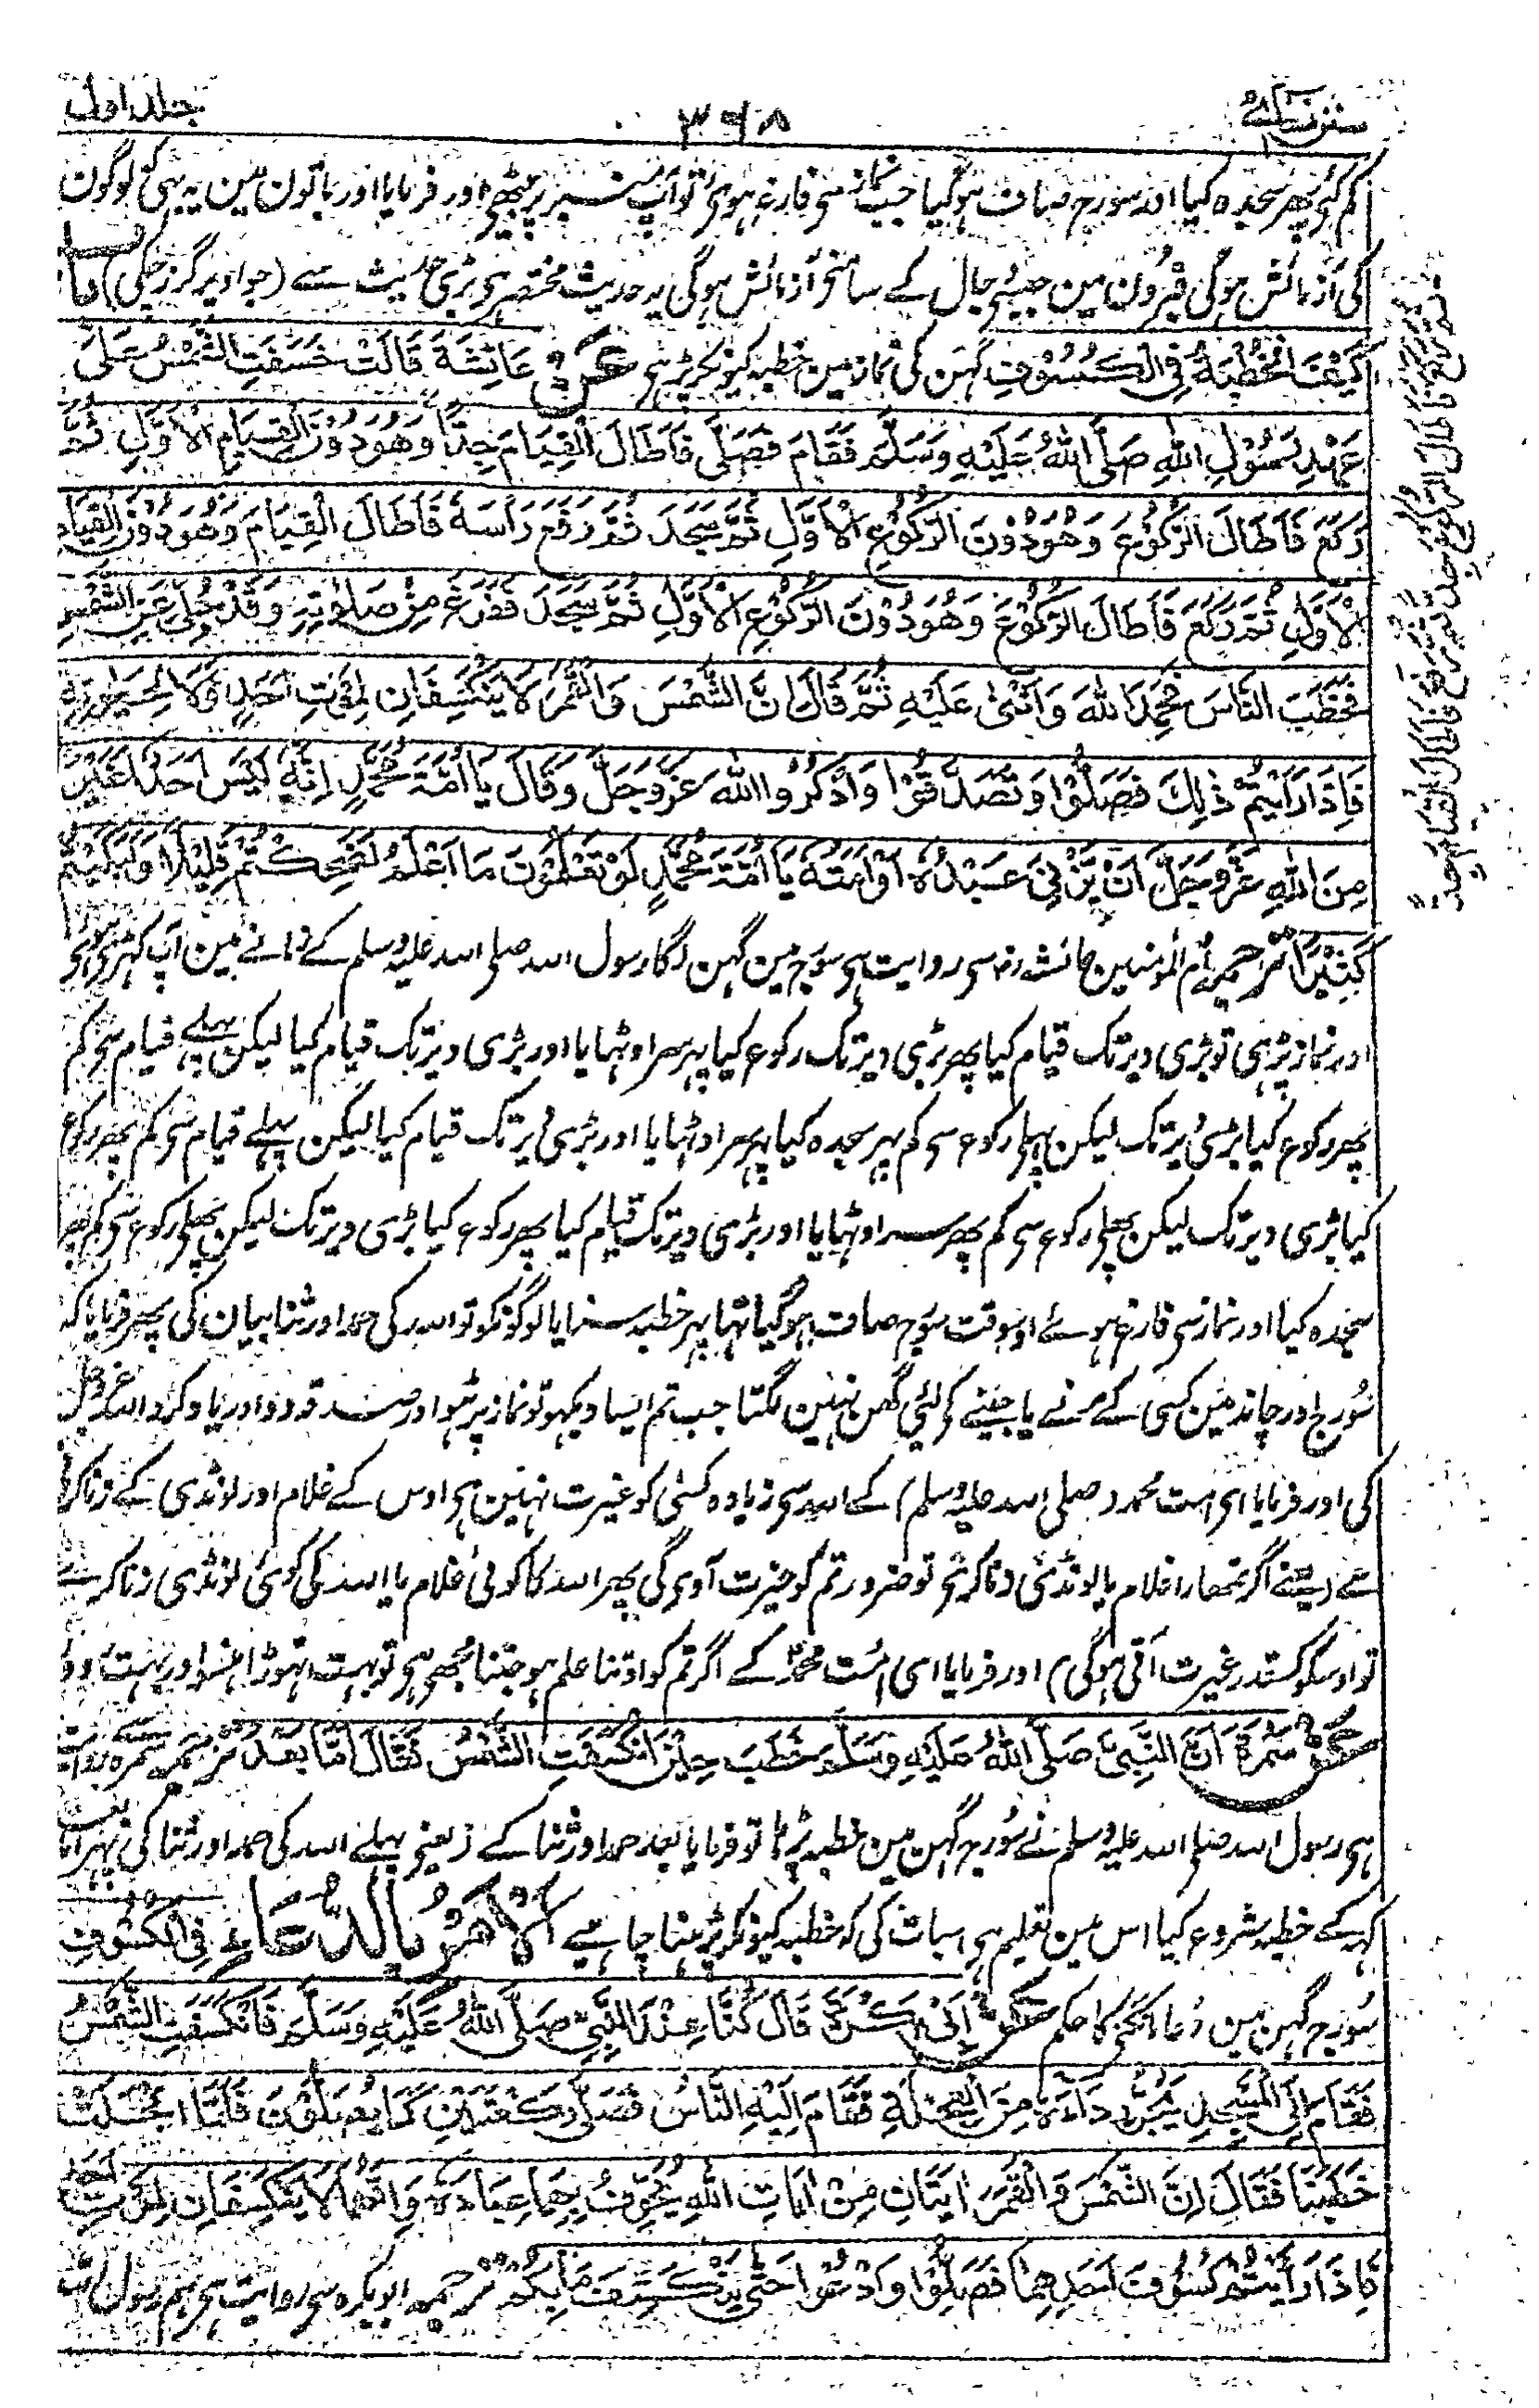 سنن نسائی ۳۶۸ جلد اول
کم کی پھر سجدہ کیا اور سورج صاف ہوگیا جب نماز سی فارغ ہوی تو آپ منبر پر بیٹھی اور فرمایا اور باتون مین یہ بہی کہ لوگون
کی آزمائش ہوگی قبرون مین جیسی دجال کے سامنی آزمائش ہوگی یہ حدیث مختصر ہی بڑی حدیث سے (جو اوپر گزر چکی) باب
كَيْفَ الْخُطْبَةُ فِي الْكُسُوْفِ گہن کی نماز مین خطبہ کیونکر پڑہی عَنْ عَائِشَةَ قَالَتْ خَسَفَتِ الشَّمْسُ عَلىٰ
عَهْدِ رَسُوْلِ اللهِ صَلَّى اللهُ عَلَيْهِ وَسَلَّمَ فَقَامَ فَصَلّٰى فَاَطَالَ الْقِيَامَ جِدًّا وَهُوَ دُوْنَ الْقِيَامِ الْاَوَّلِ ثُمَّ
رَكَعَ فَاَطَالَ الرُّكُوْعَ وَهُوَ دُوْنَ الرُّكُوْعِ الْاَوَّلِ ثُمَّ سَجَدَ ثُمَّ رَفَعَ رَاْسَهُ فَاَطَالَ الْقِيَامَ وَهُوَ دُوْنَ الْقِيَامِ
الْاَوَّلِ ثُمَّ رَكَعَ فَاَطَالَ الرُّكُوْعَ وَهُوَ دُوْنَ الرُّكُوْعِ الْاَوَّلِ ثُمَّ سَجَدَ فَفَرَغَ مِنْ صَلٰوتِهِ وَقَدْ جُلِّيَ عَنِ الشَّمْسِ
فَخَطَبَ النَّاسَ فَحَمِدَ اللهَ وَاَثْنىٰ عَلَيْهِ ثُمَّ قَالَ اِنَّ الشَّمْسَ وَالْقَمَرَ لَا يَنْكَسِفَانِ لِمَوْتِ اَحَدٍ وَّلَا لِحَيٰوتِهِ
فَاِذَا رَاَيْتُمْ ذٰلِكَ فَصَلُّوْا وَتَصَدَّقُوْا وَاذْكُرُوا اللهَ عَزَّوَجَلَّ وَقَالَ يَا اُمَّةَ مُحَمَّدٍ اِنَّهُ لَيْسَ اَحَدٌ اَغْيَرَ
مِنَ اللهِ عَزَّوَجَلَّ اَنْ يَّزْنِيَ عَبْدُهُ اَوْ اَمَتُهُ يَا اُمَّةَ مُحَمَّدٍ لَوْ تَعْلَمُوْنَ مَا اَعْلَمُ لَضَحِكْتُمْ قَلِيْلًا وَّلَبَكَيْتُمْ
كَثِيْرًا ترجمہ ام المومنین عائشہ رضہ سی روایت ہی سورج مین گہن لگا رسول اللہ صلی اللہ علیہ وسلم کے زمانے مین آپ کہڑی ہوی
اور نماز پڑہی تو بڑی دیر تک قیام کیا پھر بڑی دیر تک رکوع کیا پہر سر اوٹہایا اور بڑی دیر تک قیام کیا لیکن پہلے قیام سی کم
پھر رکوع کیا بڑی دیر تک لیکن پہلی رکوع سی کم پہر سجدہ کیا پہر سر اوٹہایا اور بڑی دیر تک قیام کیا لیکن پہلے قیام سی کم پھر رکوع
کیا بڑی دیر تک لیکن پہلی رکوع سی کم پھر سر اوٹہایا اور بڑی دیر تک قیام کیا پھر رکوع کیا بڑی دیر تک لیکن پہلی رکوع سی کم پھر
سجدہ کیا اور نماز سی فارغ ہوئے اوسوقت سورج صاف ہوگیا تہا پہر خطبہ سنایا لوگونکو تو اللہ کی حمد اور ثنا بیان کی پھر فرمایا کہ
سورج اور چاند مین کسی کے مرنے یا جینے کو لئی گہن نہین لگتا جب تم ایسا دیکہو تو نماز پڑہو اور صدقہ دو اور یاد کرو اللہ عزوجل
کی اور فرمایا ای امت محمد (صلی اللہ علیہ وسلم) کے اللہ سی زیادہ کسی کو غیرت نہین ہی اوس کے غلام اور لونڈی کے زنا کرنے
سے (یعنے اگر تمہارا غلام یا لونڈی زنا کری تو ضرور تم کو غیرت آوی گی پھر اللہ کا کوئی غلام یا اللہ کی کوئی لونڈی زنا کرے
تو اوسکو کسقدر غیرت آتی ہوگی) اور فرمایا ای امت محمد کے اگر تم کو اوتنا علم ہو جتنا مجھی ہی تو بہت تہوڑا ہنسو اور بہت روؤ
عَنْ سَمُرَةَ اَنَّ النَّبِيَّ صَلَّى اللهُ عَلَيْهِ وَسَلَّمَ خَطَبَ حِيْنَ انْكَسَفَتِ الشَّمْسُ فَقَالَ اَمَّا بَعْدُ ترجمہ سمرہ سے روایت
ہی رسول اللہ صلی اللہ علیہ وسلم نے سورج گہن مین خطبہ پڑہا تو فرمایا بعد حمد اور ثنا کے (یعنی پہلے اللہ کی حمد اور ثنا کی پہر اما بعد
کہہ کے خطبہ شروع کیا اس مین تعلیم ہی اسبات کی کہ خطبہ کیونکر پڑہنا چاہیے اَلْاَمْرُ بِالدُّعَاءِ فِي الْكُسُوْفِ
سورج گہن مین دعا مانگنی کا حکم عَنْ اَبِيْ بَكْرَةَ قَالَ كُنَّا عِنْدَ النَّبِيِّ صَلَّى اللهُ عَلَيْهِ وَسَلَّمَ فَانْكَسَفَتِ الشَّمْسُ
فَقَامَ اِلَى الْمَسْجِدِ يَجُرُّ رِدَاءَهُ مِنَ الْعَجَلَةِ فَقَامَ اِلَيْهِ النَّاسُ فَصَلّٰى رَكْعَتَيْنِ كَمَا يُصَلُّوْنَ فَلَمَّا انْجَلَتْ
خَطَبَنَا فَقَالَ اِنَّ الشَّمْسَ وَالْقَمَرَ اٰيَتَانِ مِنْ اٰيَاتِ اللهِ يُخَوِّفُ بِهِمَا عِبَادَهُ وَاِنَّهُمَا لَا يَنْكَسِفَانِ لِمَوْتِ اَحَدٍ
فَاِذَا رَاَيْتُمْ كُسُوْفَ اَحَدِهِمَا فَصَلُّوْا وَادْعُوْا حَتّٰى يَنْكَشِفَ مَا بِكُمْ ترجمہ ابو بکرہ سی روایت ہی ہم رسول اللہ